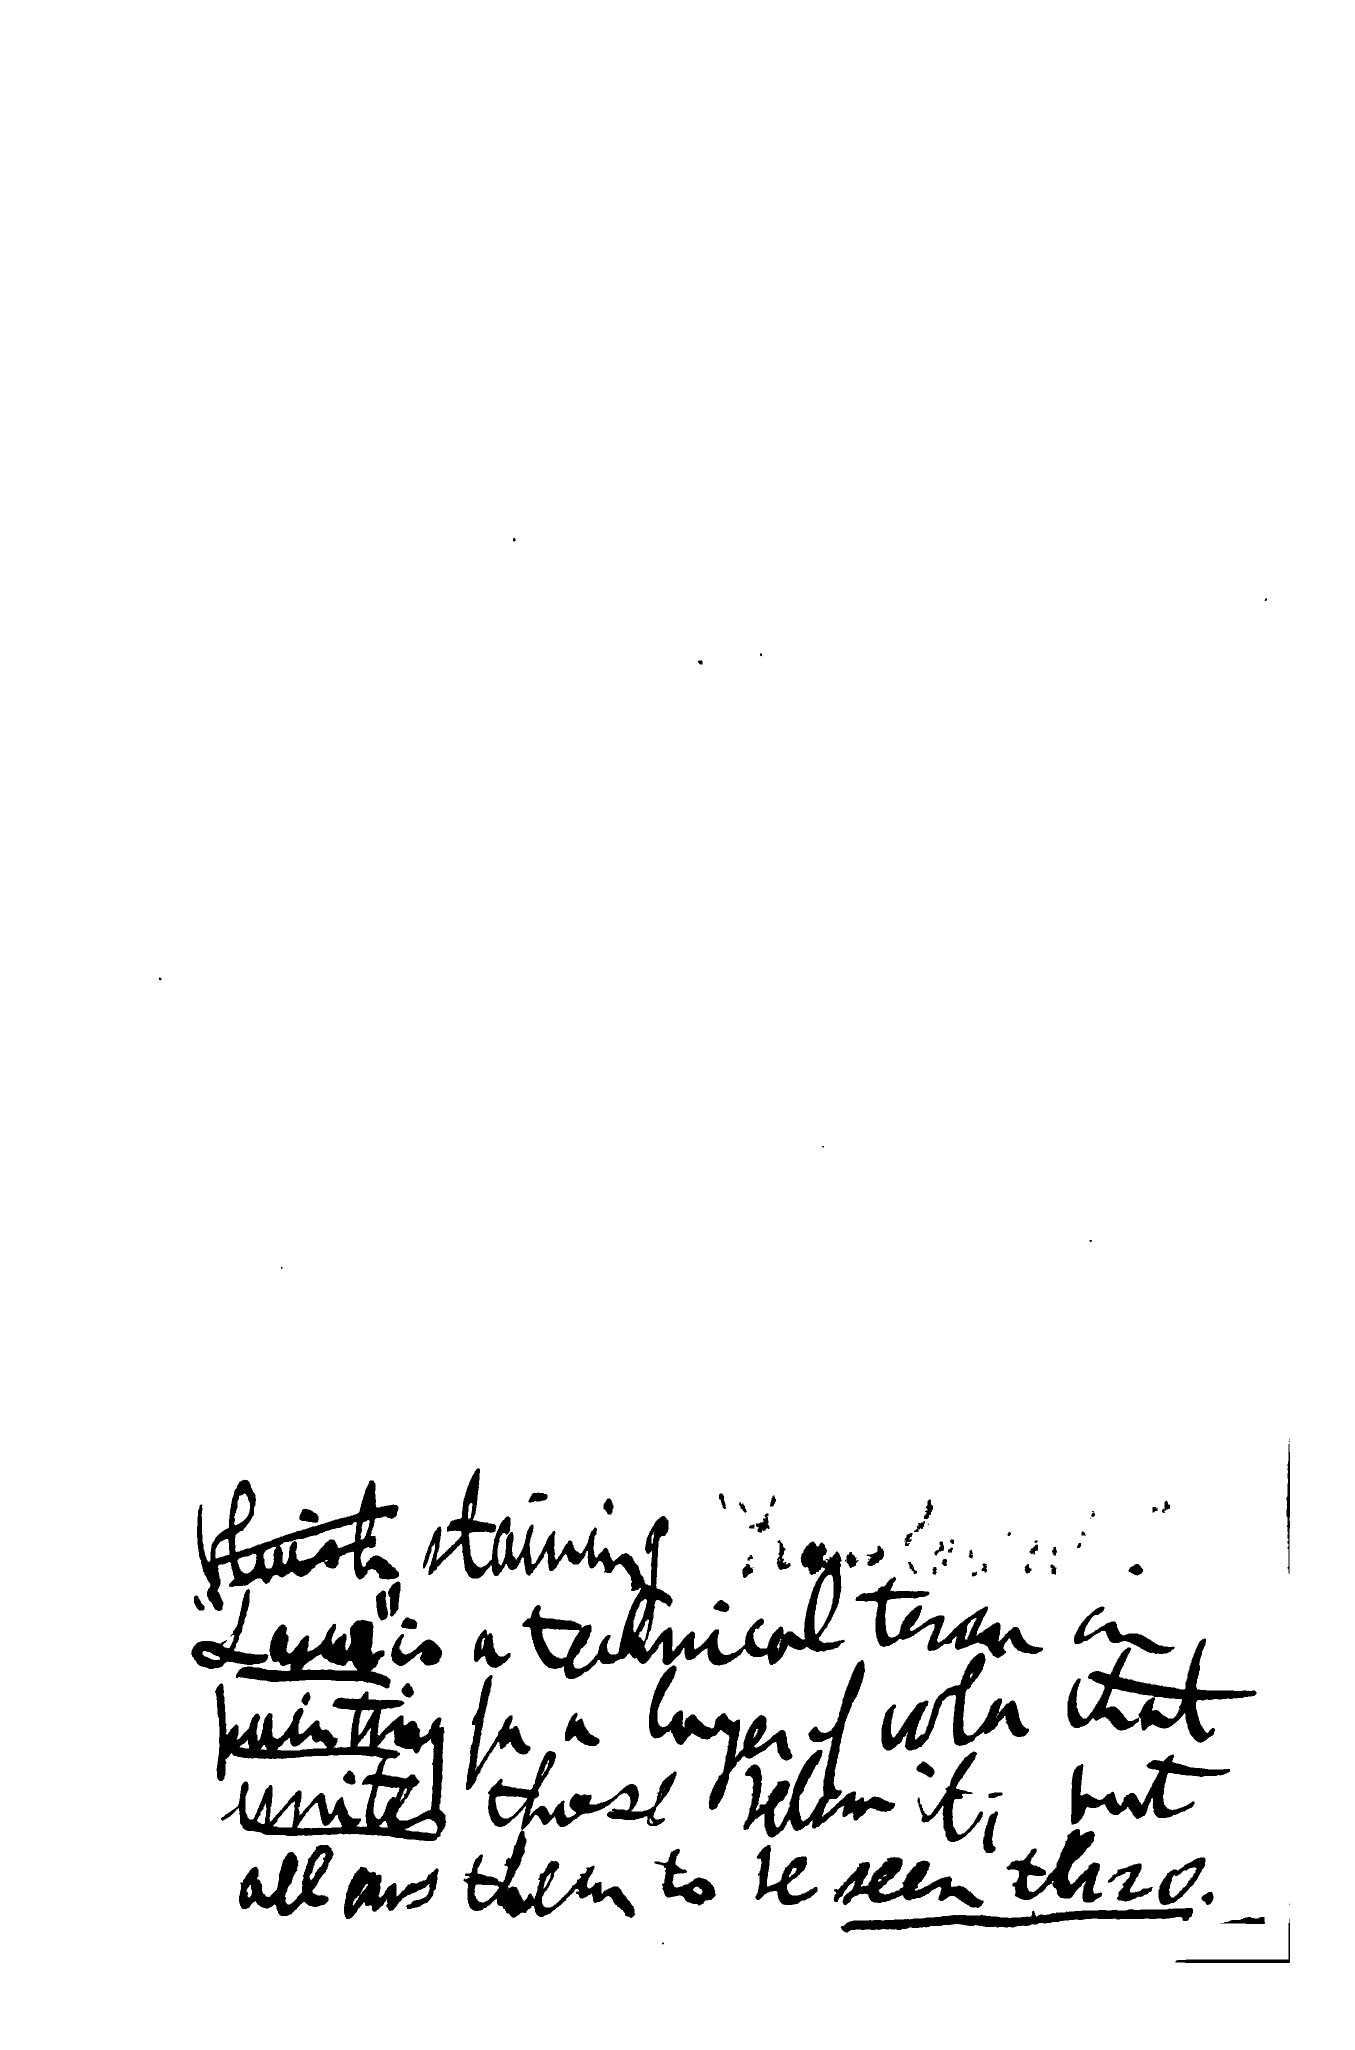 staining
"Lasur" is a technical term in
painting for a layer of color that
unites those below it, but
allows them to be seen thro.